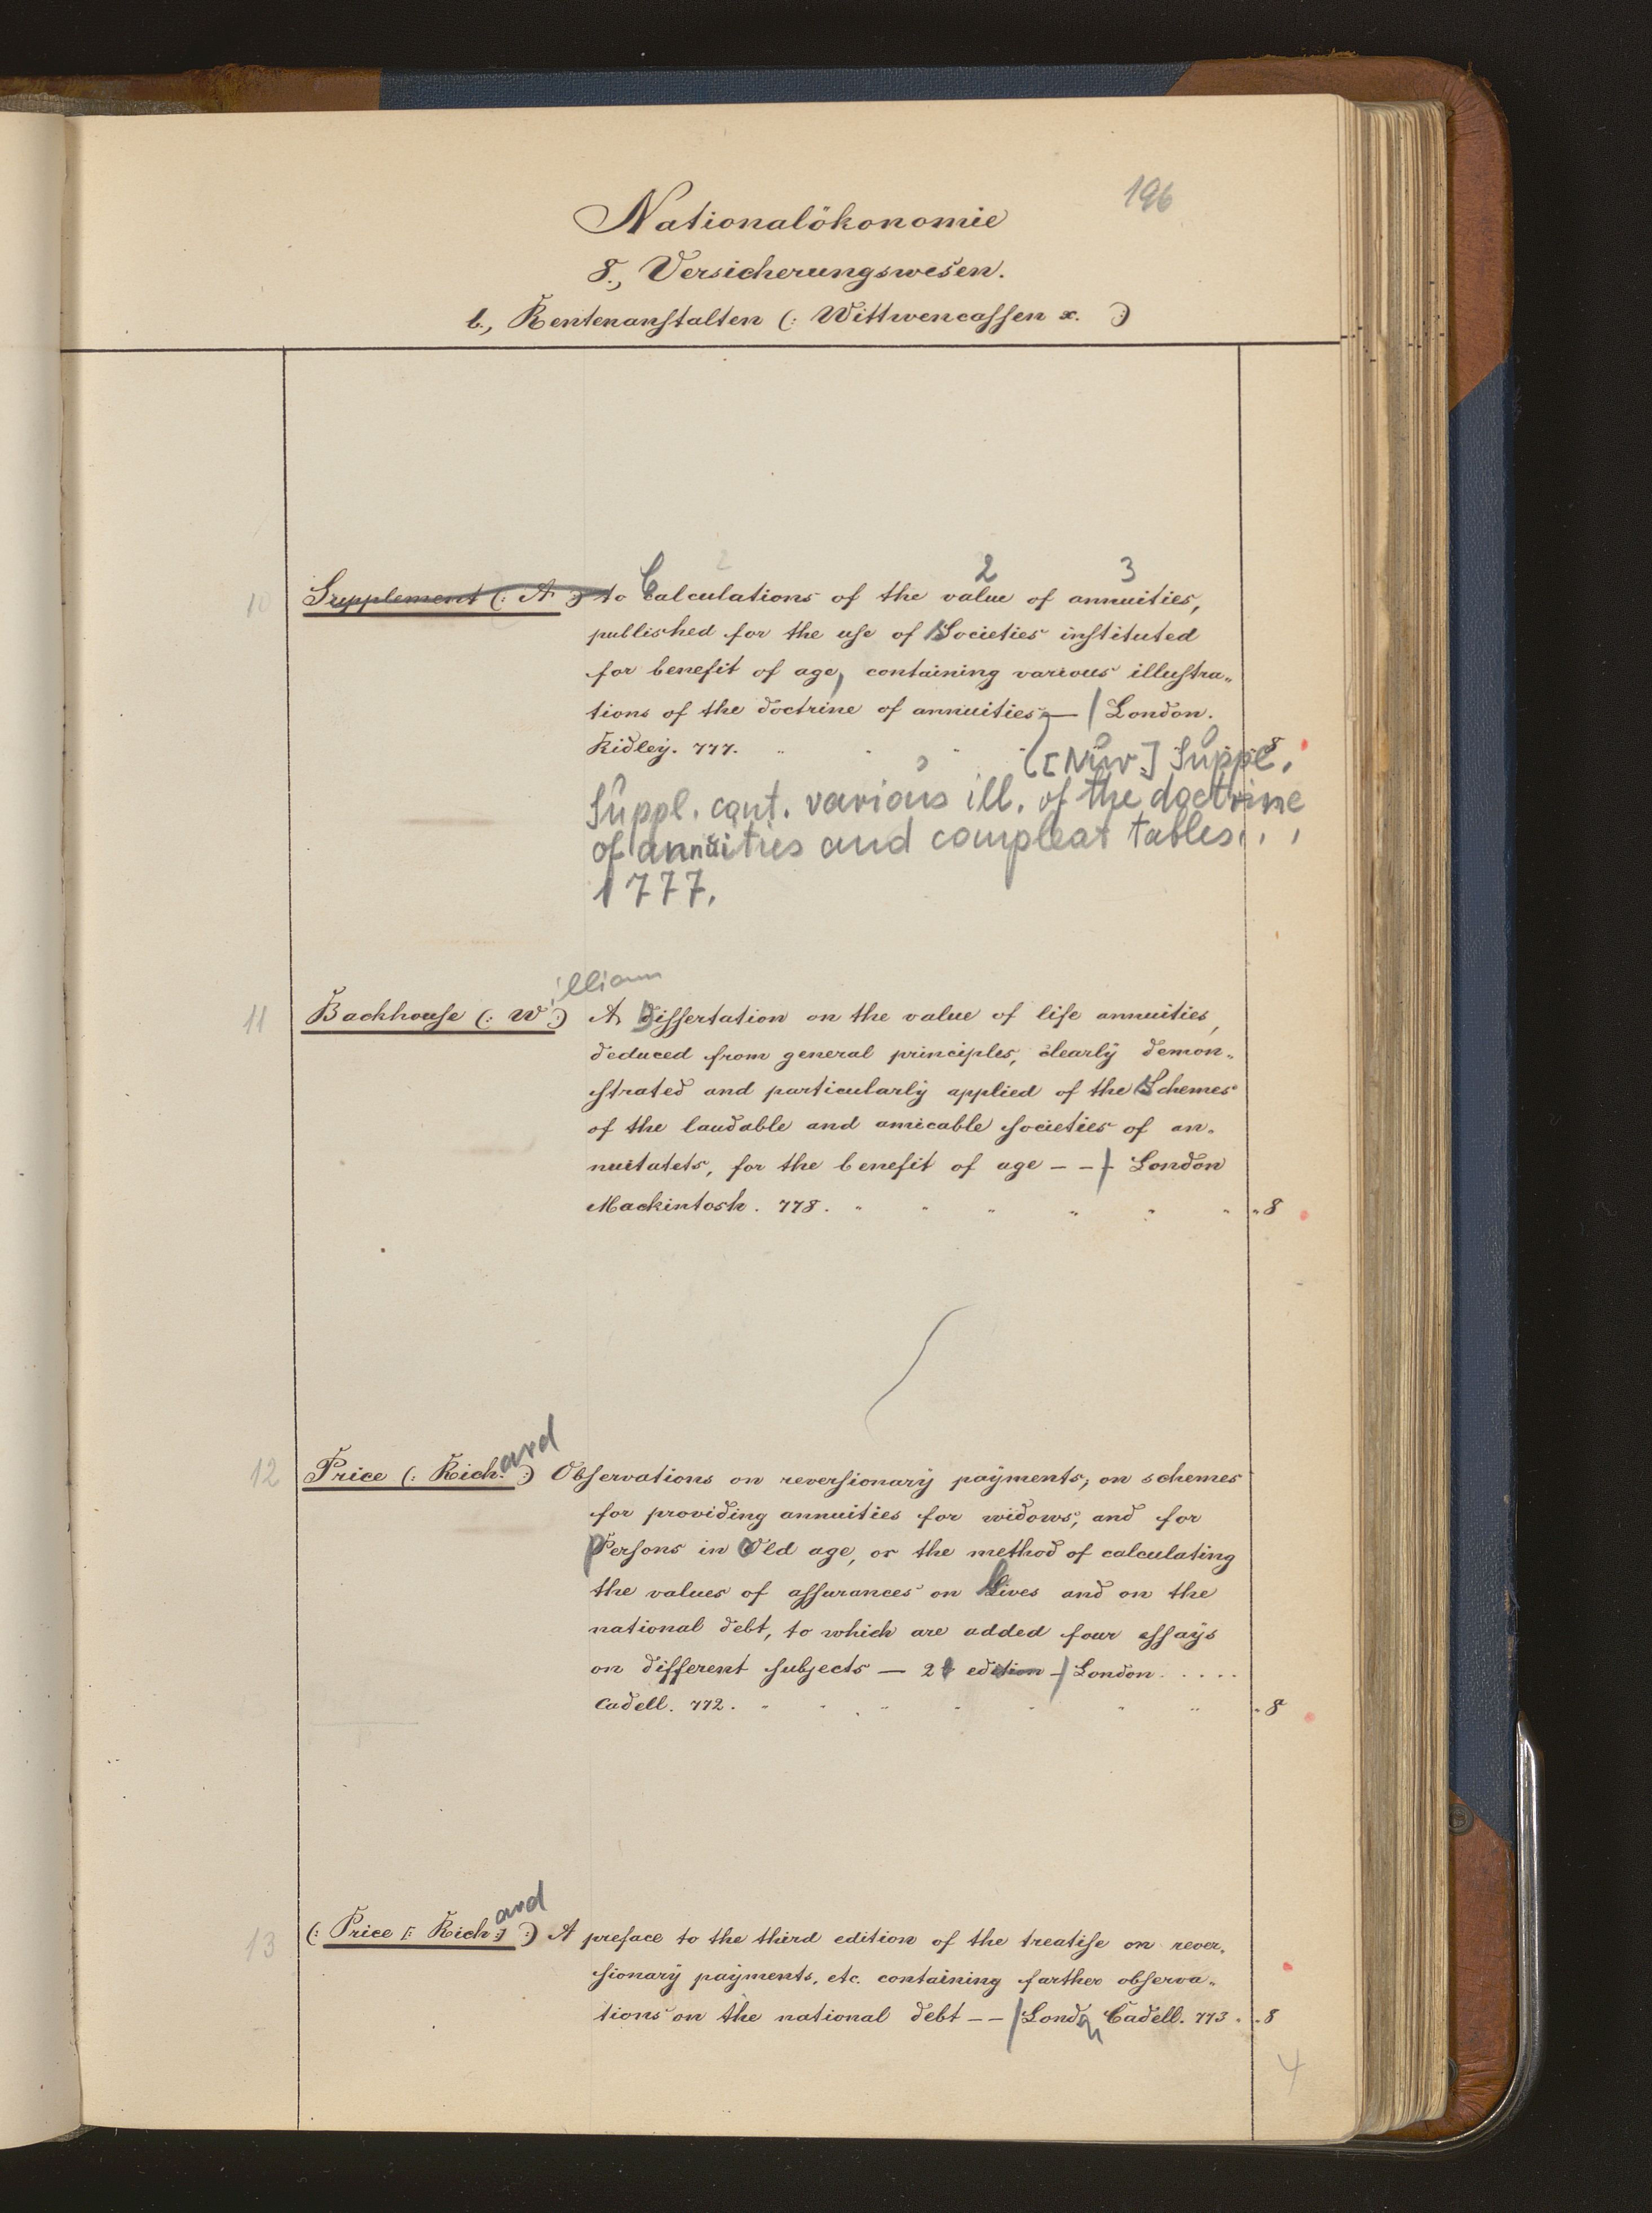 196
Nationalökonomie
8., Versicherungswesen.
b., Rentenanstalten (: Wittwencassen x. :)
2 3
10 Supplement (: A :) to Calculations of the value of annuities,
published for the use of Societies instituted
for benefit of age, containing various illustra„
tions of the doctrine of annuities, — / London.
Ridley. 777. „ „ „ 8
([Nur] Suppl.
Suppl. cont. various ill. of the doctrine
of annuities and compleat tables . . .
1777.
illiam
11 Backhouse (: W :) A Dissertation on the value of life annuities,
deduced from general principles, clearly demon„
strated and particularly applied of the Schemes
of the laudable and amicable societies of an„
nuitatets, for the benefit of age — — / London
Mackintosh. 778. „ „ „ „ „ „ „ 8
ard
12 Price (: Rich. :) Observations on reversionary payments; on schemes
for providing annuities for widows, and for
Persons in Old age, or the method of calculating
the values of assurances on Lives and on the
national debt, to which are added four essays
on different subjects — 2 edition / London . . . . .
Cadell. 772. „ „ „ „ „ „ „ „ 8
ard
13 (: Price [: Rich :] :) A preface to the third edition of the treatise on rever„
sionary payments, etc. containing farther observa„
tions on the national debt — — / London Cadell. 773. „ 8
4